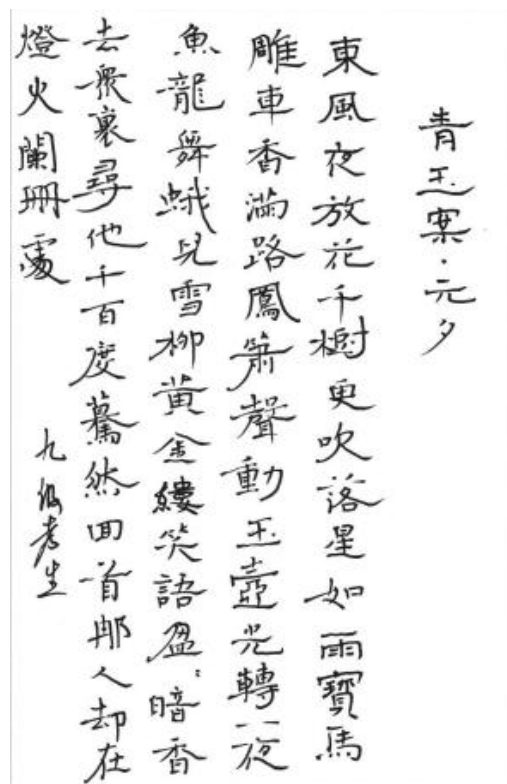 青玉案·元夕
東風夜放花千樹更吹落星如雨寶馬
雕車香滿路鳳簫聲動玉壺光轉一夜
魚龍舞蛾兒雪柳黃金縷笑語盈：暗香
去衆裏尋他千百度驀然回首那人却在
燈火闌珊處
九仙考生